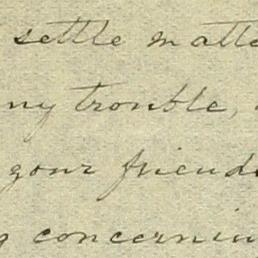 settle matte
ny trouble,
your friends
g concernin